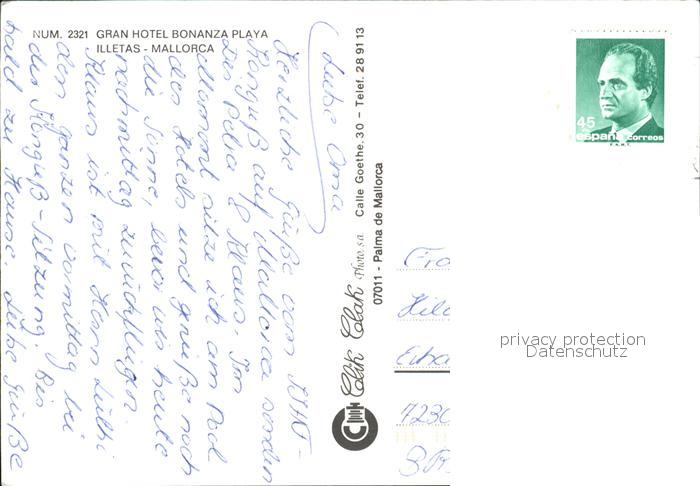 NUM. 2321 GRAN HOTEL BONANZA PLAYA
ILLETAS - MALLORCA
Liebe Oma
Herzliche Grüße vom
Kongreß auf Mallorca senden
Dir Petra & Klaus. Im
Moment sitze ich am Pool
des Hotels und genieße noch
die Sonne, bevor wir heute
nachmittag zurückfliegen
Klaus ist mit Herrn
den ganzen Vormittag bei
der Kongreß-Sitzung. Bis
bald zu Hause. Liebe Grüße
Clik Clak Photo, s.a. Calle Goethe, 30 – Telef. 28 91 13
07011 - Palma de Mallorca
45
españa correos
F.N.M.T.
7230
privacy protection
Datenschutz